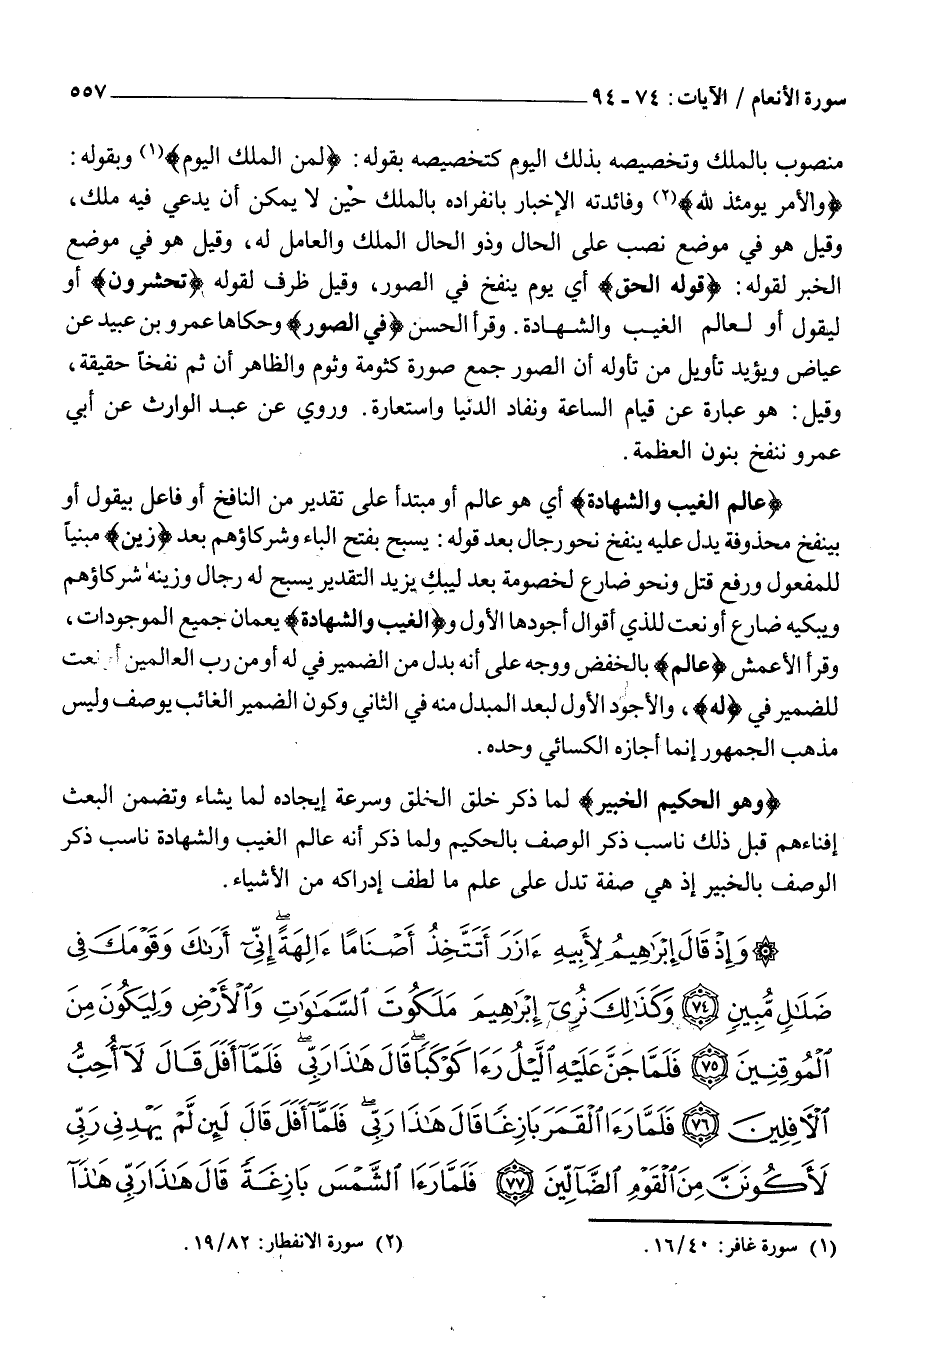 سورة الأنعام / الآيات: ٧٤ ـ ٩٤ ــــــــــــــــــــ ٥٥٧
منصوب بالملك وتخصيصه بذلك اليوم كتخصيصه بقوله: ﴿لمن الملك اليوم﴾(١) وبقوله:
﴿والأمر يومئذ لله﴾(٢) وفائدته الإخبار بانفراده بالملك حين لا يمكن أن يدعي فيه ملك،
وقيل هو في موضع نصب على الحال وذو الحال الملك والعامل له، وقيل هو في موضع
الخبر لقوله: ﴿قوله الحق﴾ أي يوم ينفخ في الصور، وقيل ظرف لقوله ﴿تحشرون﴾ أو
ليقول أو لعالم الغيب والشهادة. وقرأ الحسن ﴿في الصور﴾ وحكاها عمرو بن عبيد عن
عياض ويؤيد تأويل من تأوله أن الصور جمع صورة كثومة وثوم والظاهر أن ثم نفخاً حقيقة،
وقيل: هو عبارة عن قيام الساعة ونفاد الدنيا واستعارة. وروي عن عبد الوارث عن أبي
عمرو ننفخ بنون العظمة.
﴿عالم الغيب والشهادة﴾ أي هو عالم أو مبتدأ على تقدير من النافخ أو فاعل بيقول أو
بينفخ محذوفة يدل عليه ينفخ نحو رجال بعد قوله: يسبح بفتح الباء وشركاؤهم بعد ﴿زين﴾ مبنياً
للمفعول ورفع قتل ونحو ضارع لخصومة بعد ليبك يزيد التقدير يسبح له رجال وزينه شركاؤهم
ويبكيه ضارع أو نعت للذي أقوال أجودها الأول و﴿الغيب والشهادة﴾ يعمان جميع الموجودات،
وقرأ الأعمش ﴿عالم﴾ بالخفض ووجه على أنه بدل من الضمير في له أو من رب العالمين أو نعت
للضمير في ﴿له﴾، والأجود الأول لبعد المبدل منه في الثاني وكون الضمير الغائب يوصف وليس
مذهب الجمهور إنما أجازه الكسائي وحده.
﴿وهو الحكيم الخبير﴾ لما ذكر خلق الخلق وسرعة إيجاده لما يشاء وتضمن البعث
إفناءهم قبل ذلك ناسب ذكر الوصف بالحكيم ولما ذكر أنه عالم الغيب والشهادة ناسب ذكر
الوصف بالخبير إذ هي صفة تدل على علم ما لطف إدراكه من الأشياء.
۞ وَإِذْ قَالَ إِبْرَٰهِيمُ لِأَبِيهِ ءَازَرَ أَتَتَّخِذُ أَصْنَامًا ءَالِهَةً ۖ إِنِّىٓ أَرَىٰكَ وَقَوْمَكَ فِى
ضَلَٰلٍ مُّبِينٍ ﴿٧٤﴾ وَكَذَٰلِكَ نُرِىٓ إِبْرَٰهِيمَ مَلَكُوتَ ٱلسَّمَٰوَٰتِ وَٱلْأَرْضِ وَلِيَكُونَ مِنَ
ٱلْمُوقِنِينَ ﴿٧٥﴾ فَلَمَّا جَنَّ عَلَيْهِ ٱلَّيْلُ رَءَا كَوْكَبًا ۖ قَالَ هَٰذَا رَبِّى ۖ فَلَمَّآ أَفَلَ قَالَ لَآ أُحِبُّ
ٱلْءَافِلِينَ ﴿٧٦﴾ فَلَمَّا رَءَا ٱلْقَمَرَ بَازِغًا قَالَ هَٰذَا رَبِّى ۖ فَلَمَّآ أَفَلَ قَالَ لَئِن لَّمْ يَهْدِنِى رَبِّى
لَأَكُونَنَّ مِنَ ٱلْقَوْمِ ٱلضَّآلِّينَ ﴿٧٧﴾ فَلَمَّا رَءَا ٱلشَّمْسَ بَازِغَةً قَالَ هَٰذَا رَبِّى هَٰذَآ
(١) سورة غافر: ٤٠/١٦. (٢) سورة الانفطار: ٨٢/١٩.